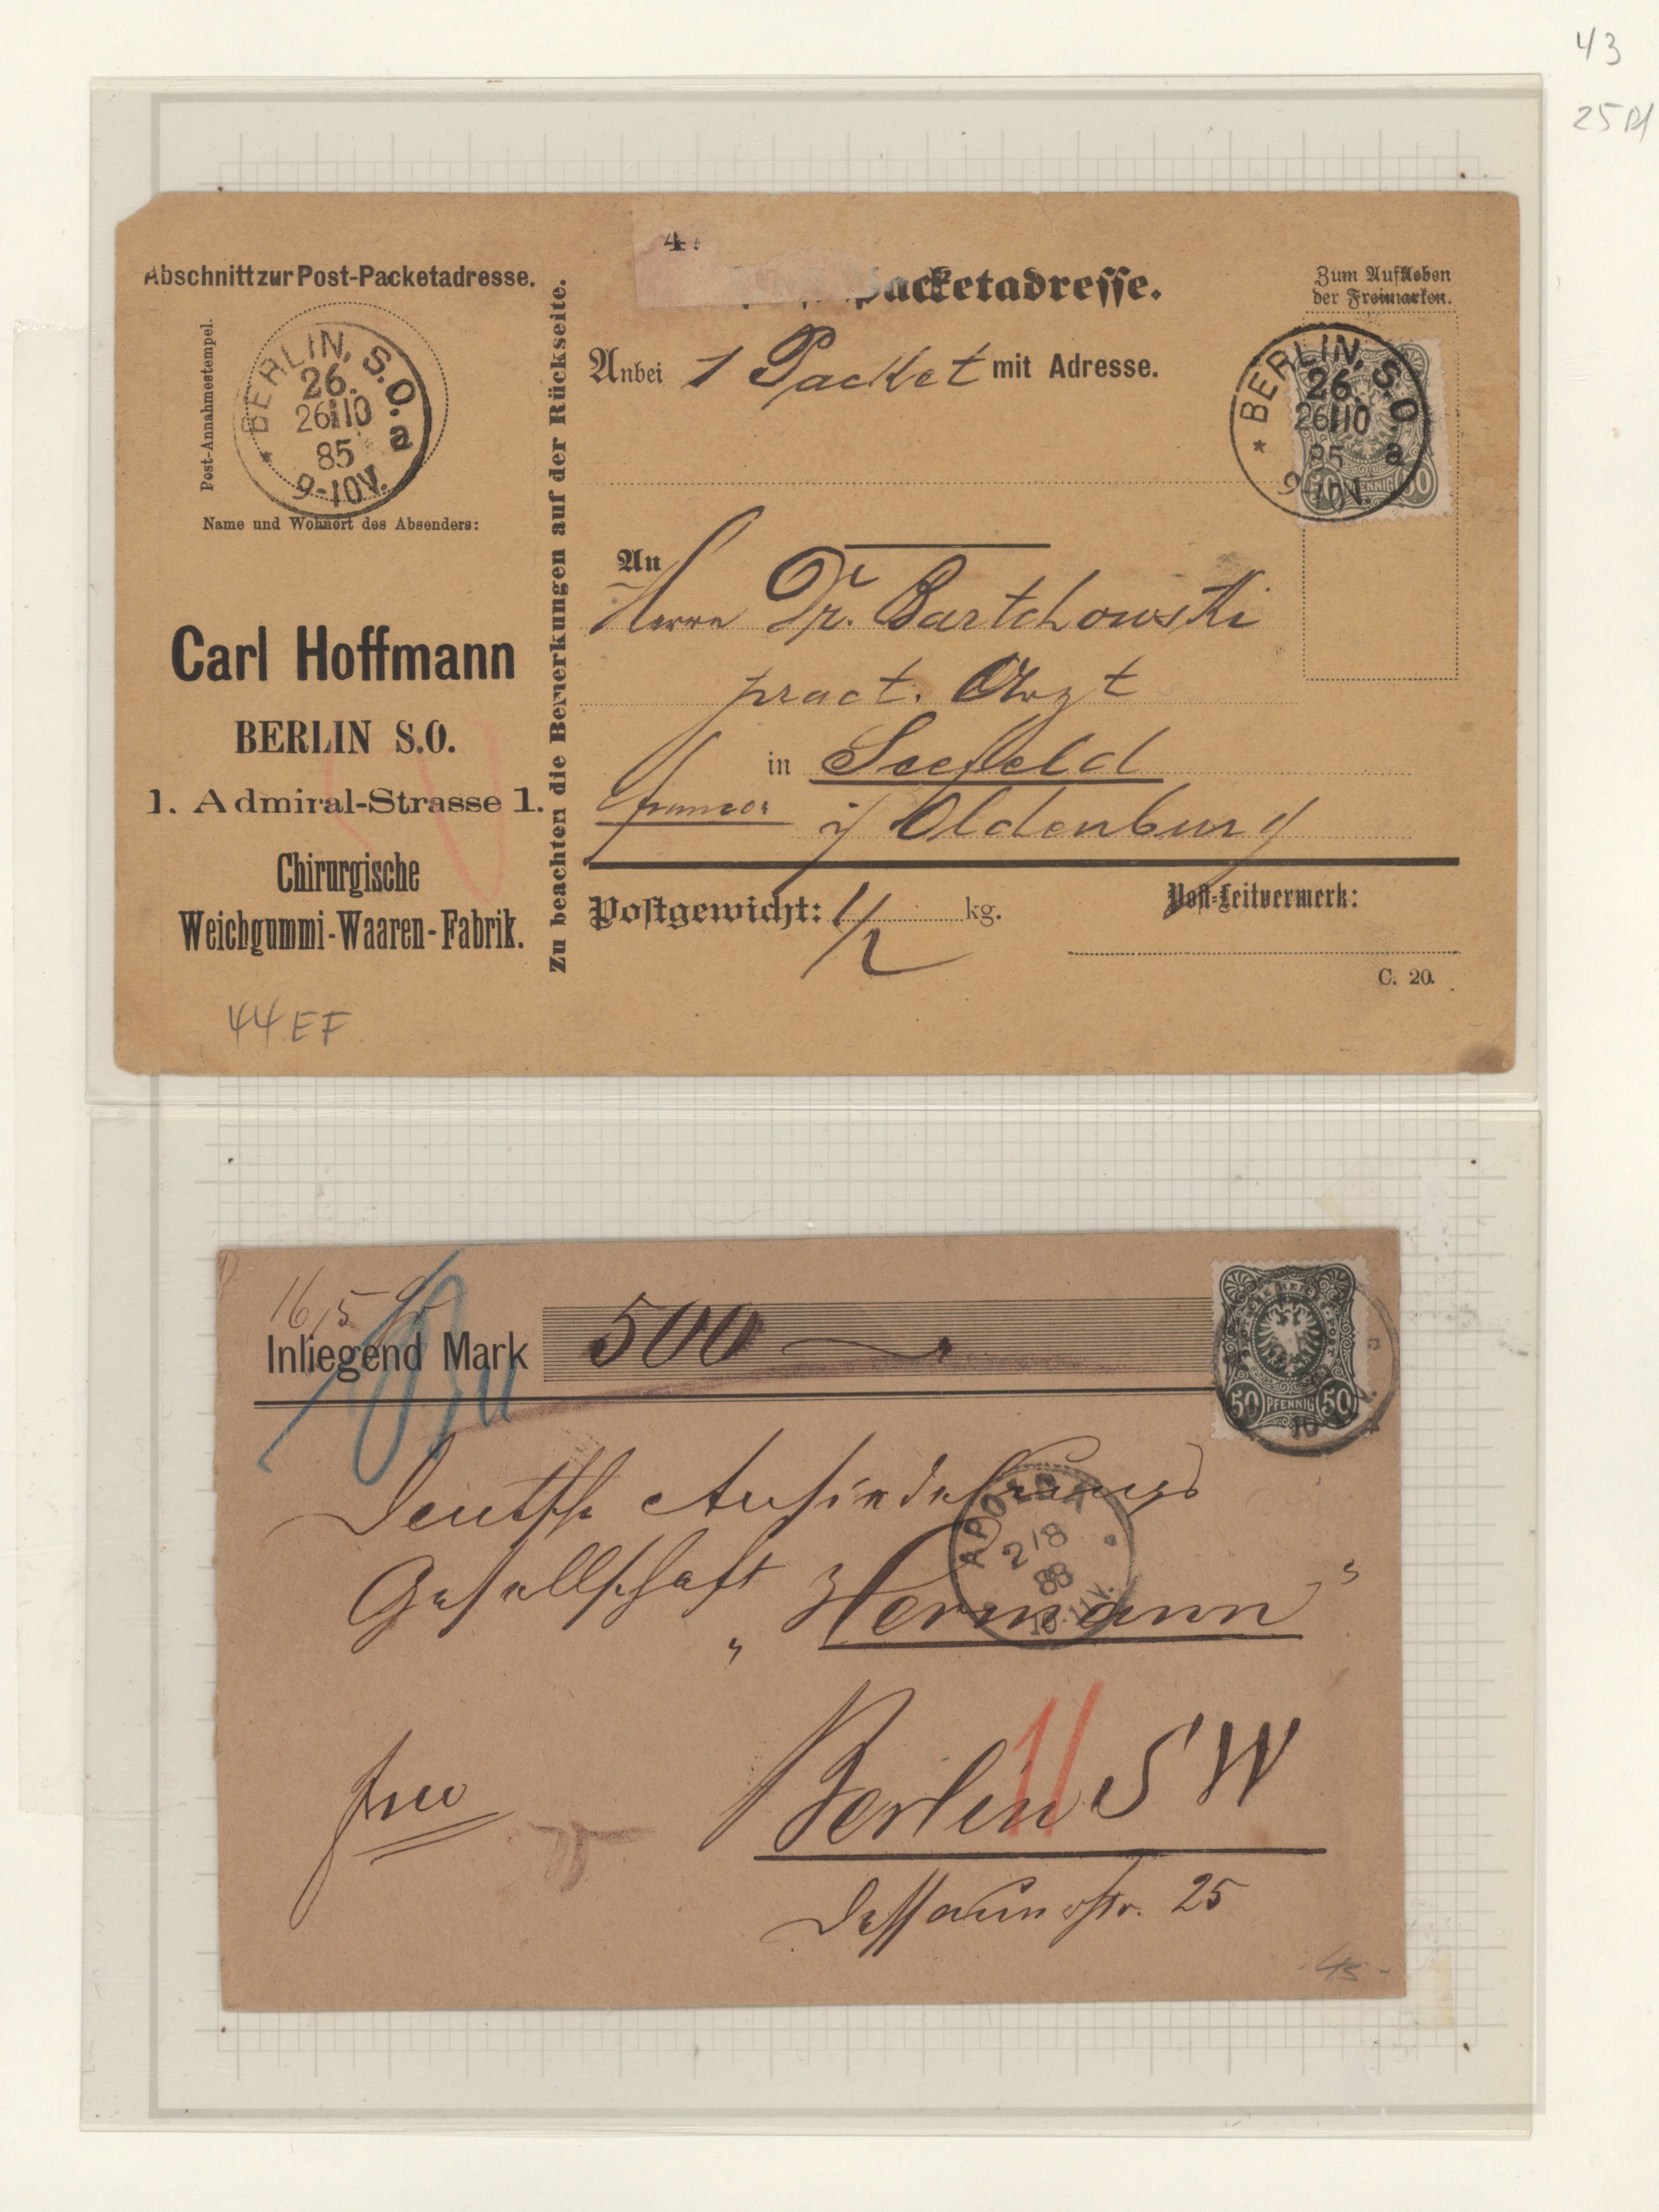 43
25 Pf
Abschnitt zur Post-Packetadresse.
Post-Annahmestempel.
BERLIN, S.O.
26.
26/10
85
a
9-10V.
Name und Wohnort des Absenders:
Carl Hoffmann
BERLIN S.O.
1. Admiral-Strasse 1.
Chirurgische
Weichgummi-Waaren-Fabrik.
44 EF
Zu beachten die Bemerkungen auf der Rückseite.
4
Packetadresse.
Anbei 1 Packet mit Adresse.
Zum Aufkleben
der Freimarken.
BERLIN, S.O
26.
26/10
85
a
9-10V.
50 PFENNIG 50
An
Herrn Dr. Bartchowski
pract. Arzt
in Seefeld
franco. i/ Oldenburg
Postgewicht: 1/2 kg.
Post-Leitvermerk:
C. 20.
16,5 gr
Inliegend Mark 500
50 PFENNIG 50
Deutsche Ansiedelungs
Gesellschaft „Hermann"
APOLDA
2/8
88
10-11V.
frco
Berlin SW
Dessauerstr. 25
45-